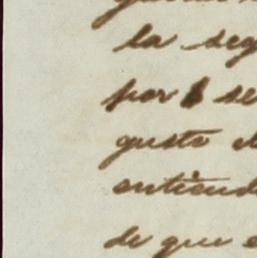 la seg
por se
gusto e
entiend
de que e